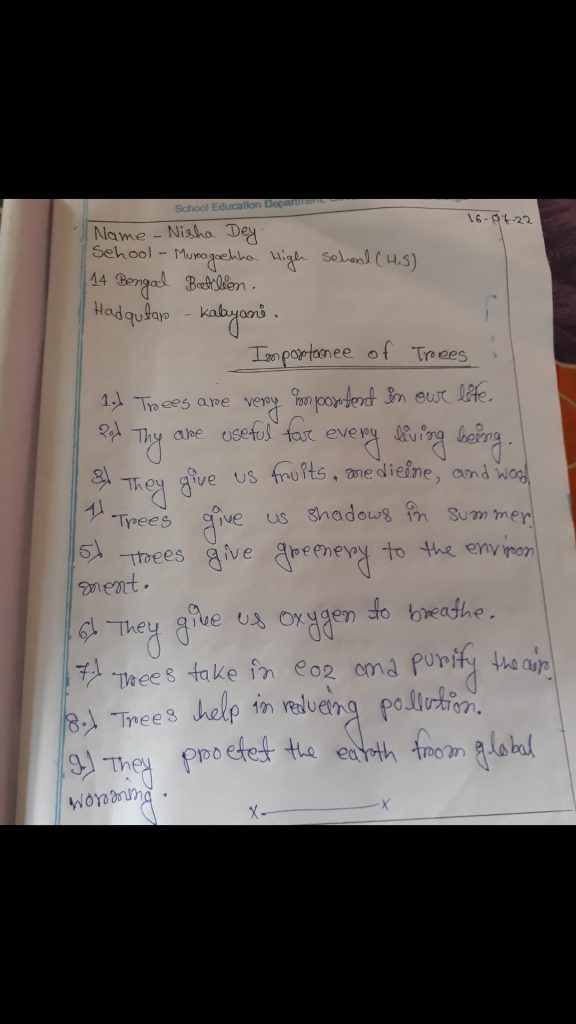 School Education Department,
16-07-22
Name - Nisha Dey.
School - Muragachha High School (H.S)
14 Bengal Batilien.
Hadqutar - Kalyani.
Importance of Trees
1.) Trees are very importent in our life.
2.) Thy are useful for every living being.
3.) They give us fruits, medicine, and wood
4.) Trees give us shadows in summer.
5.) Trees give greenery to the environ
ment.
6.) They give us oxygen to breathe.
7.) Trees take in CO2 and purify the air.
8.) Trees help in reducing pollution.
9.) They proctet the earth from global
worming.
x x